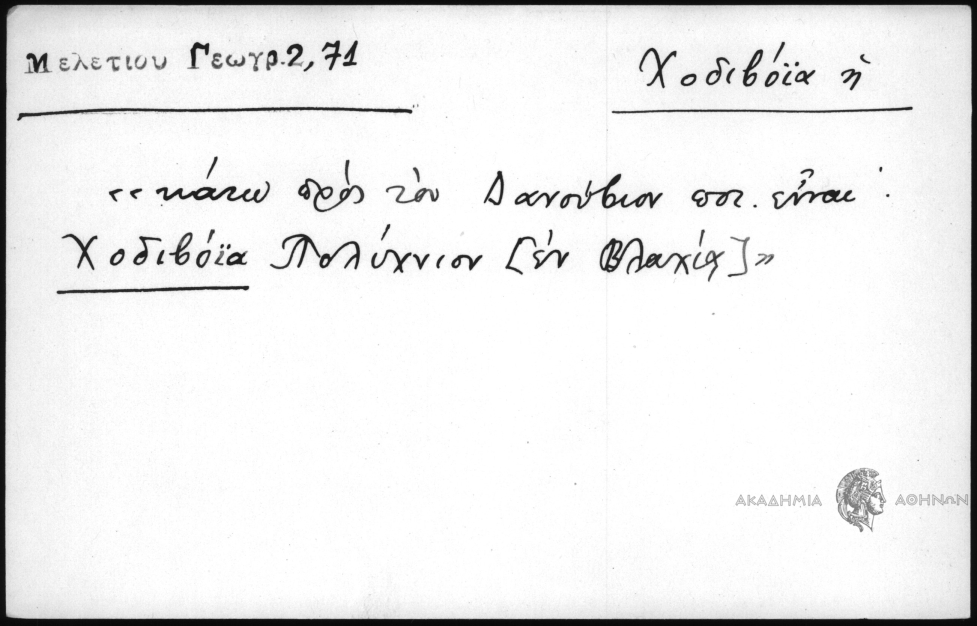 Μελετίου Γεωγρ. 2, 71
Χοδιβόϊα ἡ
«κάτω πρὸς τὸν Δανούβιον ποτ. εἶναι
Χοδιβόϊα Πολύχνιον [ἐν Βλαχίᾳ]»
ΑΚΑΔΗΜΙΑ ΑΘΗΝΩΝ